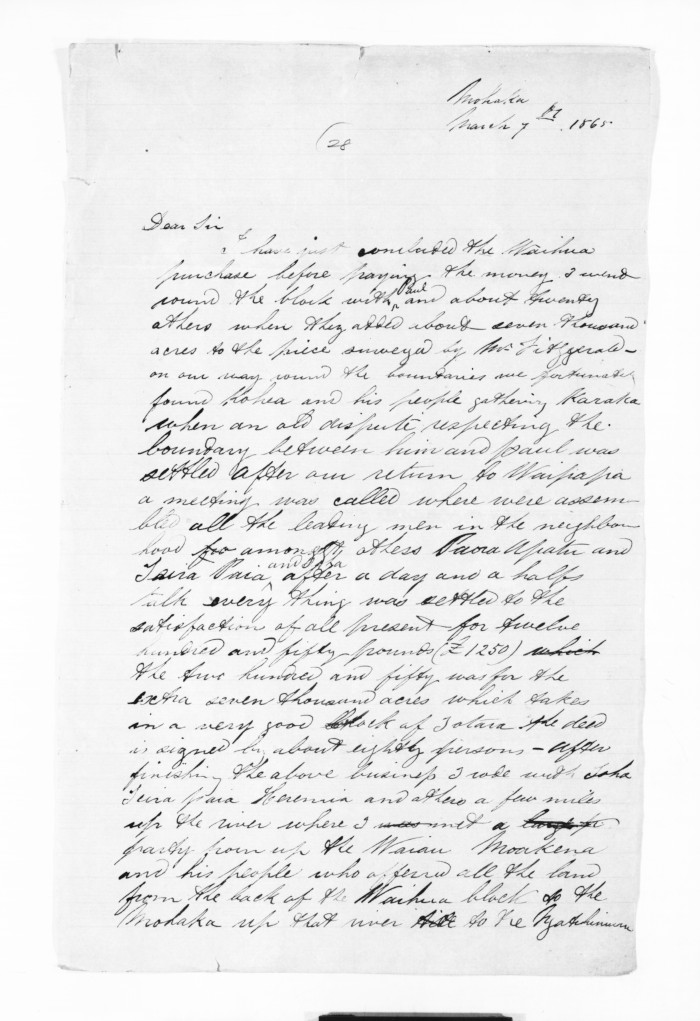 Mohaka
March 7th 1865
(28
Dear Sir
I have just concluded the Waihua
purchase before paying the money I went
round the block with Paul and about twenty
others when they added about seven thousand
acres to the piece surveyed by Mr Fitzgerald –
on our way round the boundaries we fortunately
found Kohea and his people gathering Karaka
when an old dispute respecting the
boundary between him and Paul was
settled after our return to Waipapa
a meeting was called where were assem-
bled all the leading men in the neighbour
hood amongst others Paora Apatu and
Teira Paia and after a day and a halfs
talk every thing was settled to the
satisfaction of all present for twelve
hundred and fifty pounds (£1250) which
the two hundred and fifty was for the
extra seven thousand acres which takes
in a very good block of Totara the deed
is signed by about eighty persons – after
finishing the above business I rode with
Teira Paia Heremia and others a few miles
up the river where I was met a large
party from up the Waiau Moakena
and his people who offered all the land
from the back of the Waihua block to the
Mohaka up that river to the